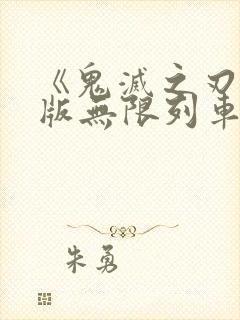 《鬼滅之刃
版無限列車
朱勇